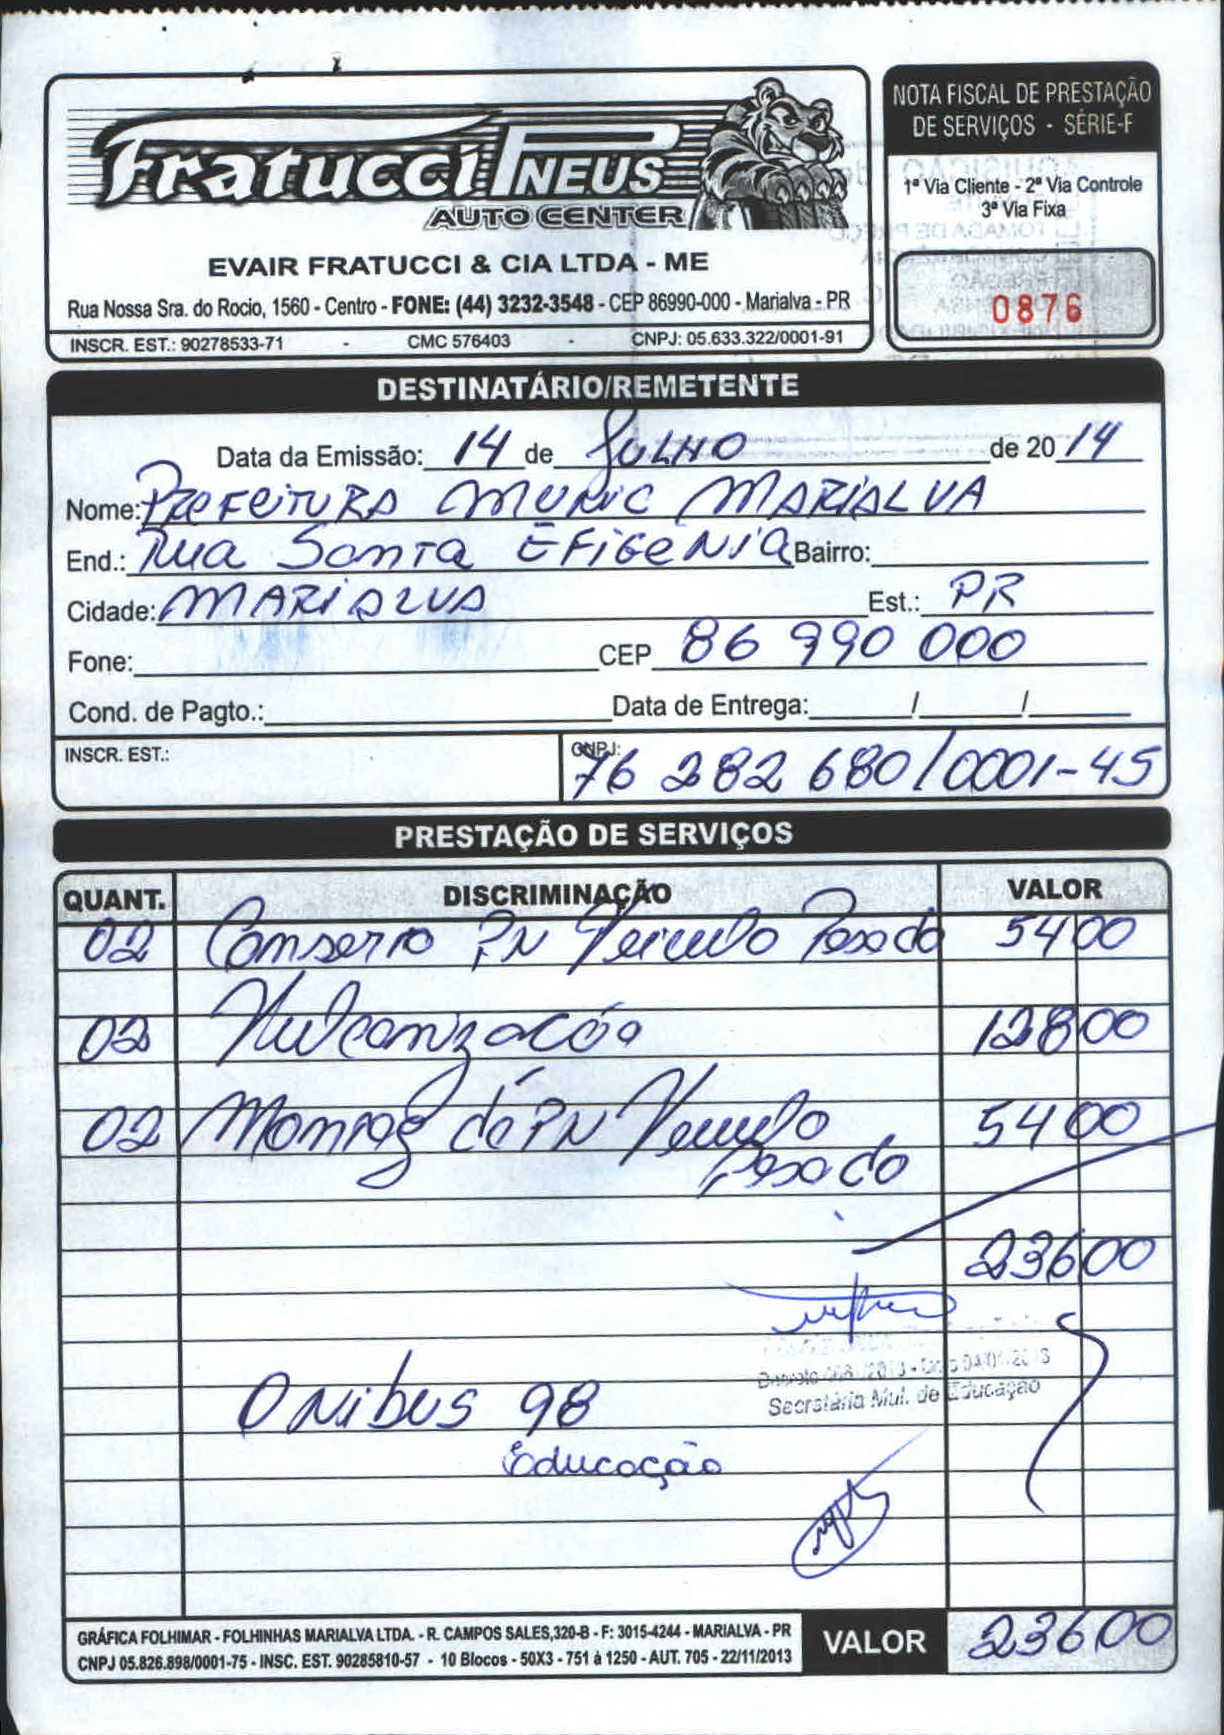 Fratucci PNEUS
AUTO CENTER
EVAIR FRATUCCI & CIA LTDA - ME
Rua Nossa Sra. do Rocio, 1560 - Centro - FONE: (44) 3232-3548 - CEP 86990-000 - Marialva - PR
INSCR. EST.: 90278533-71 - CMC 576403 - CNPJ: 05.633.322/0001-91
NOTA FISCAL DE PRESTAÇÃO
DE SERVIÇOS - SÉRIE-F
1ª Via Cliente - 2ª Via Controle
3ª Via Fixa
0876
DESTINATÁRIO/REMETENTE
Data da Emissão: 14 de JULHO de 2014
Nome: PREFEITURA MUNIC MARIALVA
End.: Rua Santa EFIGENIA Bairro:
Cidade: MARIALVA Est.: PR
Fone: CEP 86 990 000
Cond. de Pagto.: Data de Entrega: / /
INSCR. EST.: CNPJ: 76 282 680/0001-45
PRESTAÇÃO DE SERVIÇOS
QUANT. DISCRIMINAÇÃO VALOR
02 Conserto PN Veiculo Pesado 54 00
02 Vulcanização 128 00
02 Montag de PN Veiculo 54 00
Pesado
236 00
Secretária Mul. de Educação
Onibus 98
Educação
GRÁFICA FOLHIMAR - FOLHINHAS MARIALVA LTDA. - R. CAMPOS SALES,320-B - F: 3015-4244 - MARIALVA - PR
CNPJ 05.826.898/0001-75 - INSC. EST. 90285810-57 - 10 Blocos - 50X3 - 751 à 1250 - AUT. 705 - 22/11/2013
VALOR 236 00